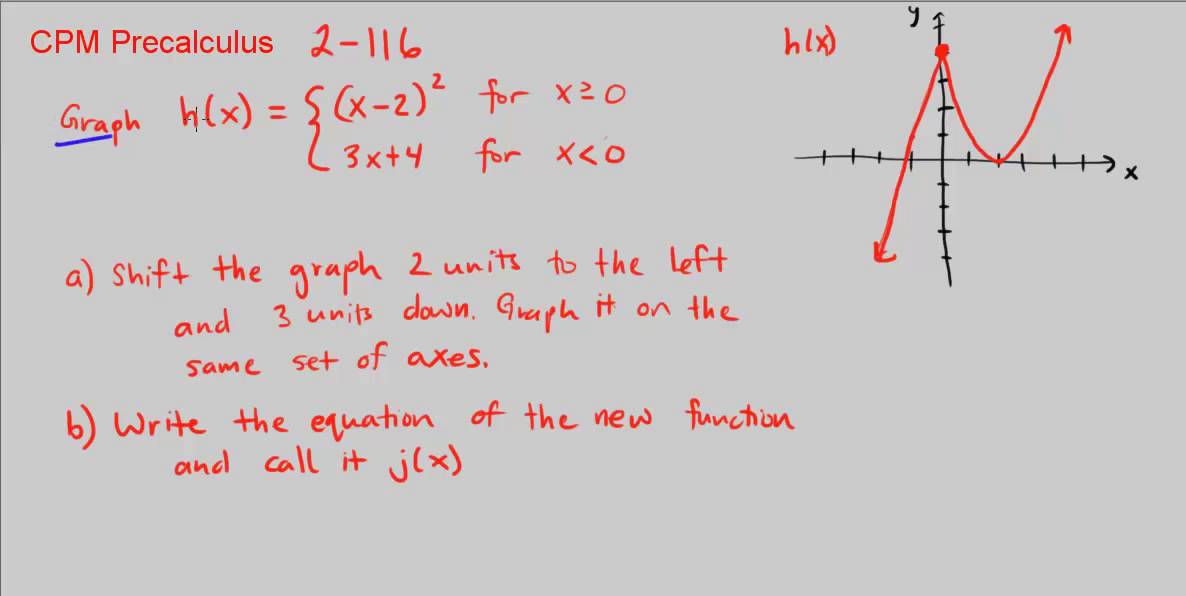 CPM Precalculus 2-116
Graph h(x) = { (x-2)² for x ≥ 0
3x+4 for x < 0
h(x)
y
x
a) Shift the graph 2 units to the left
and 3 units down. Graph it on the
same set of axes.
b) Write the equation of the new function
and call it j(x)